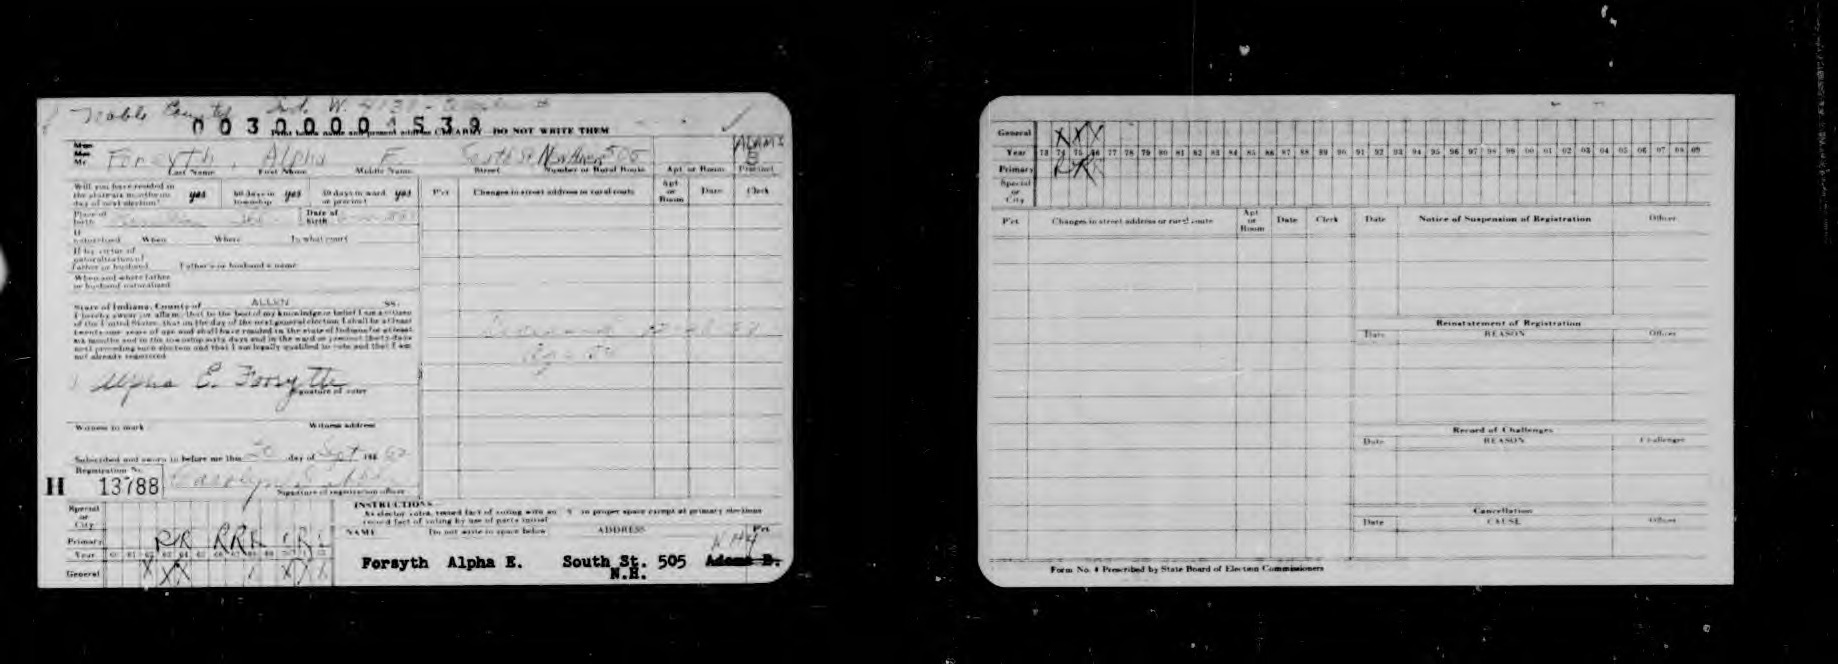 Noble County Ind. W.
00300004539
Print below name and present address CLEARLY—DO NOT WRITE THEM
Miss
Mrs
Mr
Forsyth, Alpha E. South St New Haven 505 ADAMS B
Last Name First Name Middle Name Street Number or Rural Route Apt or Room Precinct
Will you have resided in the state six months on day of next election? yes 60 days in township yes 30 days in ward or precinct yes
Pct Changes in street address or rural route Apt or Room Date Clerk
Place of birth Date of birth
If naturalized When Where In what court
If by virtue of naturalization of Father or husband Father's or husband's name
When and where father or husband naturalized
State of Indiana, County of ALLEN SS.
I hereby swear (or affirm) that to the best of my knowledge or belief I am a citizen
of the United States, that on the day of the next general election I shall be at least
twenty-one years of age and shall have resided in the state of Indiana for at least
six months and in the township sixty days and in the ward or precinct thirty days
next preceding such election and that I am legally qualified to vote and that I am
not already registered
Alpha E. Forsyth
Signature of voter
Witness to mark Witness address
Subscribed and sworn to before me this 20 day of Sept 196
Registration No.
H 13788
Signature of registration officer
Special or City
Primary R R R R R
Year 60 61 62 63 64 65 66 67 68 69 70 71 72
General X X X
INSTRUCTIONS
As elector votes, record fact of voting with an X in proper space except at primary elections
record fact of voting by use of party initial
NAME Do not write in space below ADDRESS Pct
NH4
Forsyth Alpha E. South St. 505 Adams B.
N.H.
General X X X
Year 73 74 75 76 77 78 79 80 81 82 83 84 85 86 87 88 89 90 91 92 93 94 95 96 97 98 99 00 01 02 03 04 05 06 07 08 09
Primary R R
Special or City
Pct Changes in street address or rural route Apt or Room Date Clerk Date Notice of Suspension of Registration Officer
Reinstatement of Registration
Date REASON Officer
Record of Challenges
Date REASON Challenger
Cancellation
Date CAUSE Officer
Form No. 4 Prescribed by State Board of Election Commissioners